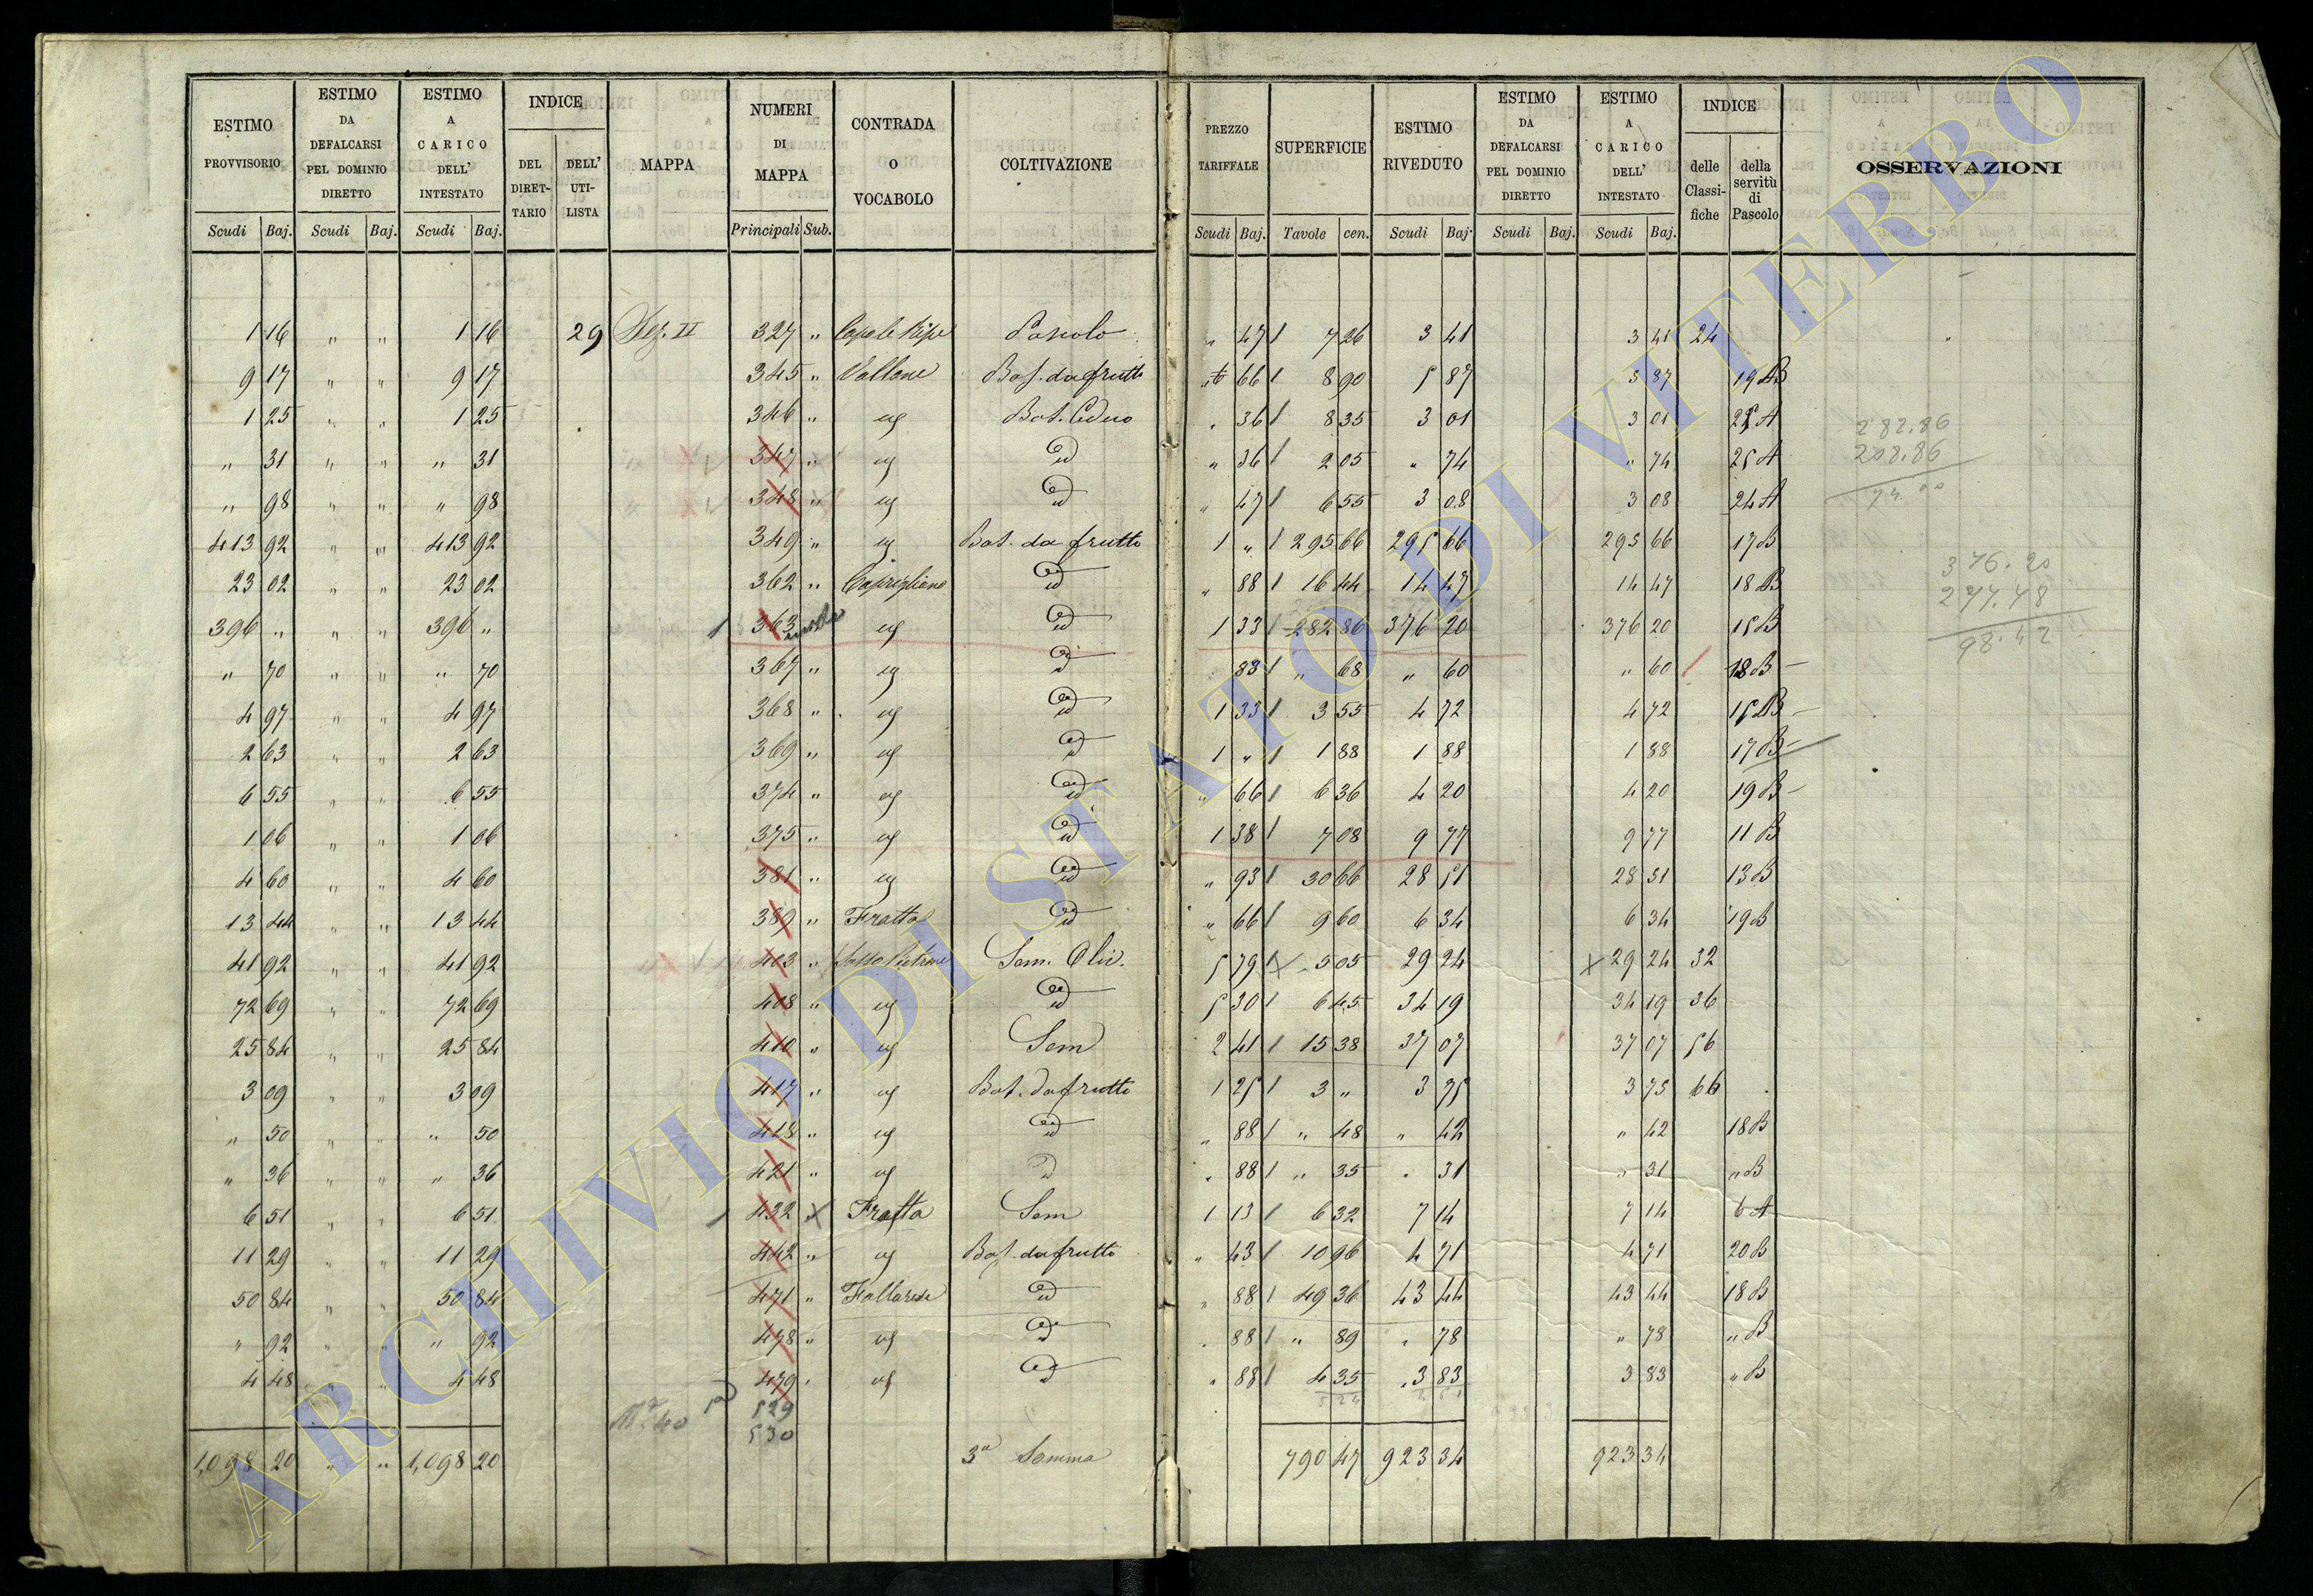 ESTIMO PROVVISORIO
ESTIMO DA DEFALCARSI PEL DOMINIO DIRETTO
ESTIMO A CARICO DELL' INTESTATO
INDICE
DEL DIRETTARIO
DELL' UTILISTA
MAPPA
NUMERI DI MAPPA
CONTRADA O VOCABOLO
COLTIVAZIONE
PREZZO TARIFFALE
SUPERFICIE
ESTIMO RIVEDUTO
ESTIMO DA DEFALCARSI PEL DOMINIO DIRETTO
ESTIMO A CARICO DELL' INTESTATO
INDICE
delle Classifiche
della servitù di Pascolo
OSSERVAZIONI
Scudi Baj. Scudi Baj. Scudi Baj. Principali Sub. Scudi Baj. Tavole cen. Scudi Baj. Scudi Baj. Scudi Baj.
1 16 " " 1 16 29 Sez. II 327 " Capo le Ripe Pascolo " 47 7 26 3 41 3 41 24
9 17 " " 9 17 345 " Vallone Bos. da frutto " 66 8 90 5 87 5 87 19 B
1 25 " " 1 25 346 " id Bos. Ceduo " 36 8 35 3 01 3 01 25 A
" 31 " " " 31 347 " id id " 36 2 05 " 74 " 74 25 A
" 98 " " " 98 348 " id id " 47 6 55 3 08 3 08 24 A
413 92 " " 413 92 349 " id Bos. da frutto 1 " 295 66 295 66 295 66 17 B
23 02 " " 23 02 362 " Caprigliano id " 88 16 44 14 47 14 47 18 B
396 " " " 396 " 363 id id 1 33 282 86 376 20 376 20 15 B
" 70 " " " 70 367 " id id 88 " 68 " 60 " 60 18 B
4 97 " " 4 97 368 " id id 1 33 3 55 4 72 4 72 15 B
2 63 " " 2 63 369 " id id 1 " 1 88 1 88 1 88 17 B
6 55 " " 6 55 374 " id id " 66 6 36 4 20 4 20 19 B
1 06 " " 1 06 375 " id id 1 38 7 08 9 77 9 77 11 B
4 60 " " 4 60 381 " id id " 93 30 66 28 51 28 51 13 B
13 44 " " 13 44 389 " Fratta id " 66 9 60 6 34 6 34 19 B
41 92 " " 41 92 403 " Sem. Oliv. 5 79 5 05 29 24 29 24 32
72 69 " " 72 69 408 " id id 5 30 6 45 34 19 34 19 36
25 84 " " 25 84 410 " id Sem 2 41 15 38 37 07 37 07 56
3 09 " " 3 09 417 " id Bos. da frutto 1 25 3 " 3 75 3 75 66
" 50 " " " 50 418 " id id " 88 " 48 " 42 " 42 18 B
" 36 " " " 36 421 " id id " 88 " 35 " 31 " 31 " B
6 51 " " 6 51 432 Fratta Sem 1 13 6 32 7 14 7 14 6 A
11 29 " " 11 29 442 " id Bos. da frutto " 43 10 96 4 71 4 71 20 B
50 84 " " 50 84 471 " id " 88 49 36 43 44 43 44 18 B
" 92 " " " 92 478 " id id " 88 " 89 " 78 " 78 " B
4 48 " " 4 48 479 " id id " 88 4 35 3 83 3 83 " B
529
530
1,098 20 " " 1,098 20 3a Somma 790 47 923 34 923 34
282.86
208.86
74.00
376.20
277.78
98.42
ARCHIVIO DI STATO DI VITERBO